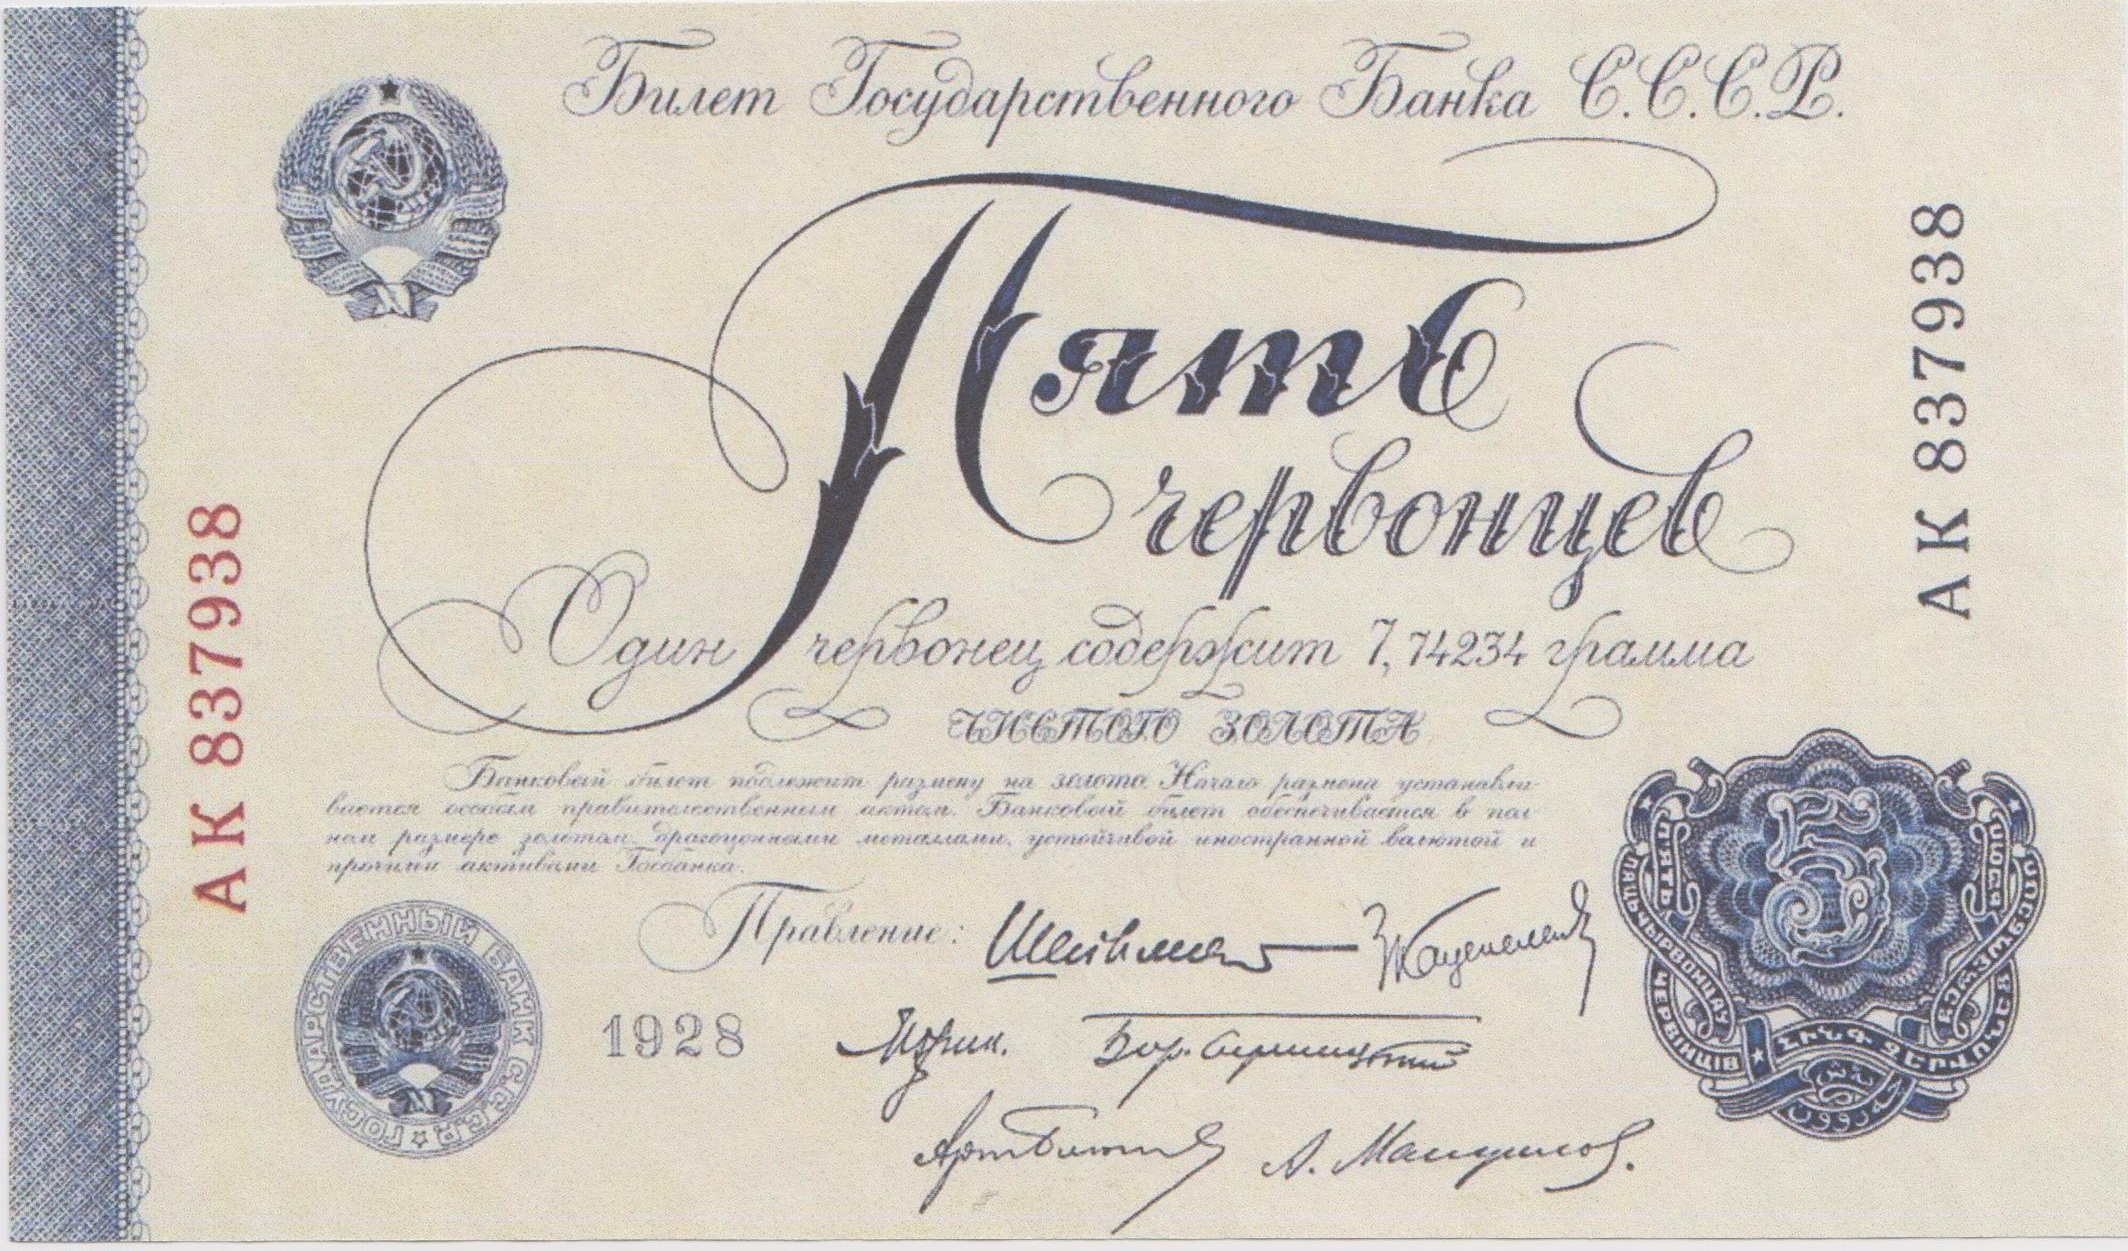 Билет Государственного Банка С.С.С.Р.
Пять
червонцев
Один червонец содержит 7,74234 грамма
ЧИСТОГО ЗОЛОТА
Банковый билет подлежит размену на золото. Начало размена устанавли-
вается особым правительственным актом. Банковый билет обеспечивается в пол-
ном размере золотом, драгоценными металлами, устойчивой иностранной валютой и
прочими активами Госбанка.
Правление:
1928
АК 837938
АК 837938
ГОСУДАРСТВЕННЫЙ БАНК С.С.С.Р.
5
П'ЯТЬ
ЧЕРВІНЦІВ
ПЯЦЬ ЧЫРВОНЦАЎ
ՀԻՆԳ ՉԵՐՎՈՆԵՑ